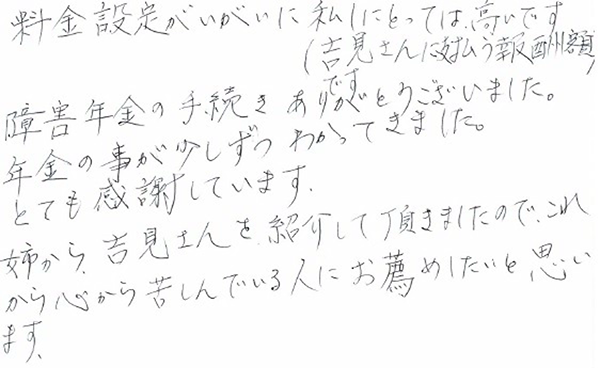 料金設定がいがいに私しにとっては、高いです
(吉見さんに対払う報酬額)
です
障害年金の手続きありがとうございました。
年金の事が少しずつわかってきました。
とても感謝しています。
姉から、吉見さんを紹介して頂きましたので、これ
から心から苦しんでいる人にお薦めしたいと思い
ます。